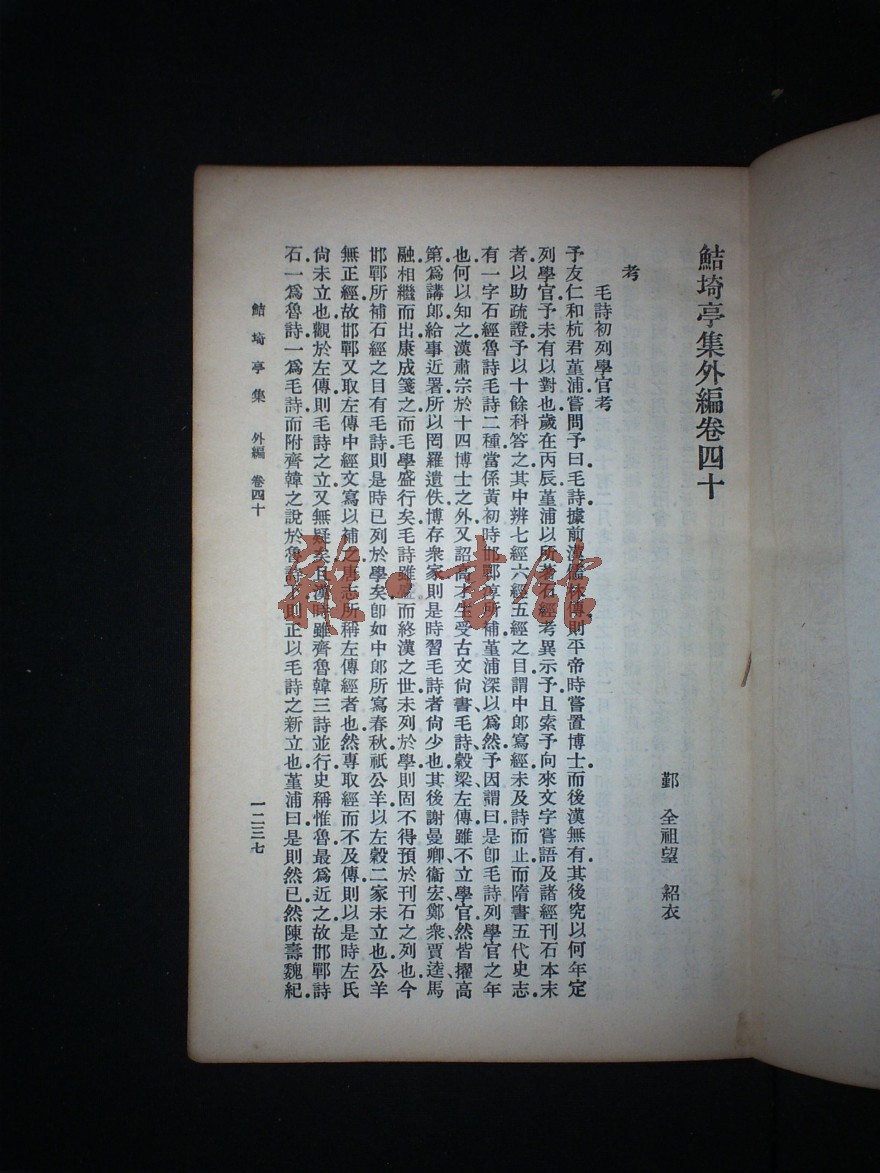 鮚埼亭集外編卷四十
鄞　全祖望　紹衣
考
毛詩初列學官考
予友仁和杭君堇浦嘗問予曰毛詩據前漢儒林傳則平帝時嘗置博士而後漢無有其後究以何年定
列學官予未有以對也歲在丙辰堇浦以所著石經考異示予且索予向來文字嘗語及諸經刊石本末
者以助疏證予以十餘科答之其中辨七經六經五經之目謂中郎寫經未及詩而止而隋書五代史志
有一字石經魯詩毛詩二種當係黃初時邯鄲淳所補堇浦深以為然予因謂曰是卽毛詩列學官之年
也何以知之漢肅宗於十四博士之外又詔高才生受古文尙書毛詩穀梁左傳雖不立學官然皆擢高
第爲講郎給事近署所以罔羅遺佚博存衆家則是時習毛詩者尙少也其後謝曼卿衞宏鄭衆賈逵馬
融相繼而出康成箋之而毛學盛行矣毛詩雖盛而終漢之世未列於學則固不得預於刊石之列也今
邯鄲所補石經之目有毛詩則是時已列於學矣卽如中郎所寫春秋祇公羊以左穀二家未立也公羊
無正經故邯鄲又取左傳中經文寫以補之唐志所稱左傳經者也然專取經而不及傳則以是時左氏
尙未立也觀於左傳則毛詩之立又無疑矣且漢時雖齊魯韓三詩並行史稱惟魯最爲近之故邯鄲詩
石一爲魯詩一爲毛詩而附齊韓之說於魯詩下則正以毛詩之新立也堇浦曰是則然已然陳壽魏紀
鮚埼亭集　外編　卷四十
一二三七
雜·書館